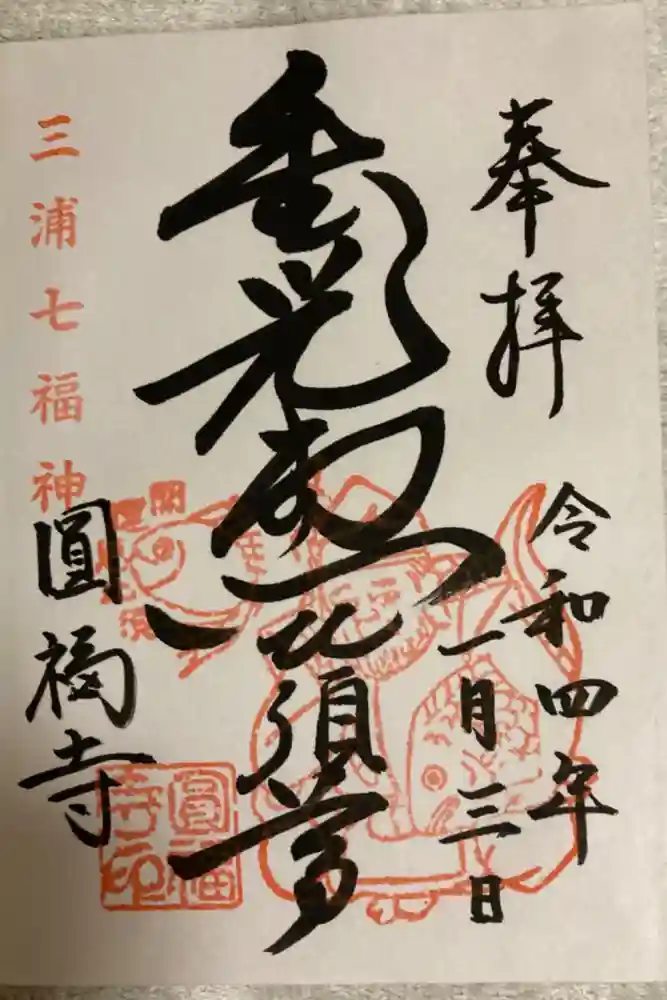 奉拝
令和四年
一月三日
金光恵比須尊
三浦七福神
圓福寺
圓福
寺印